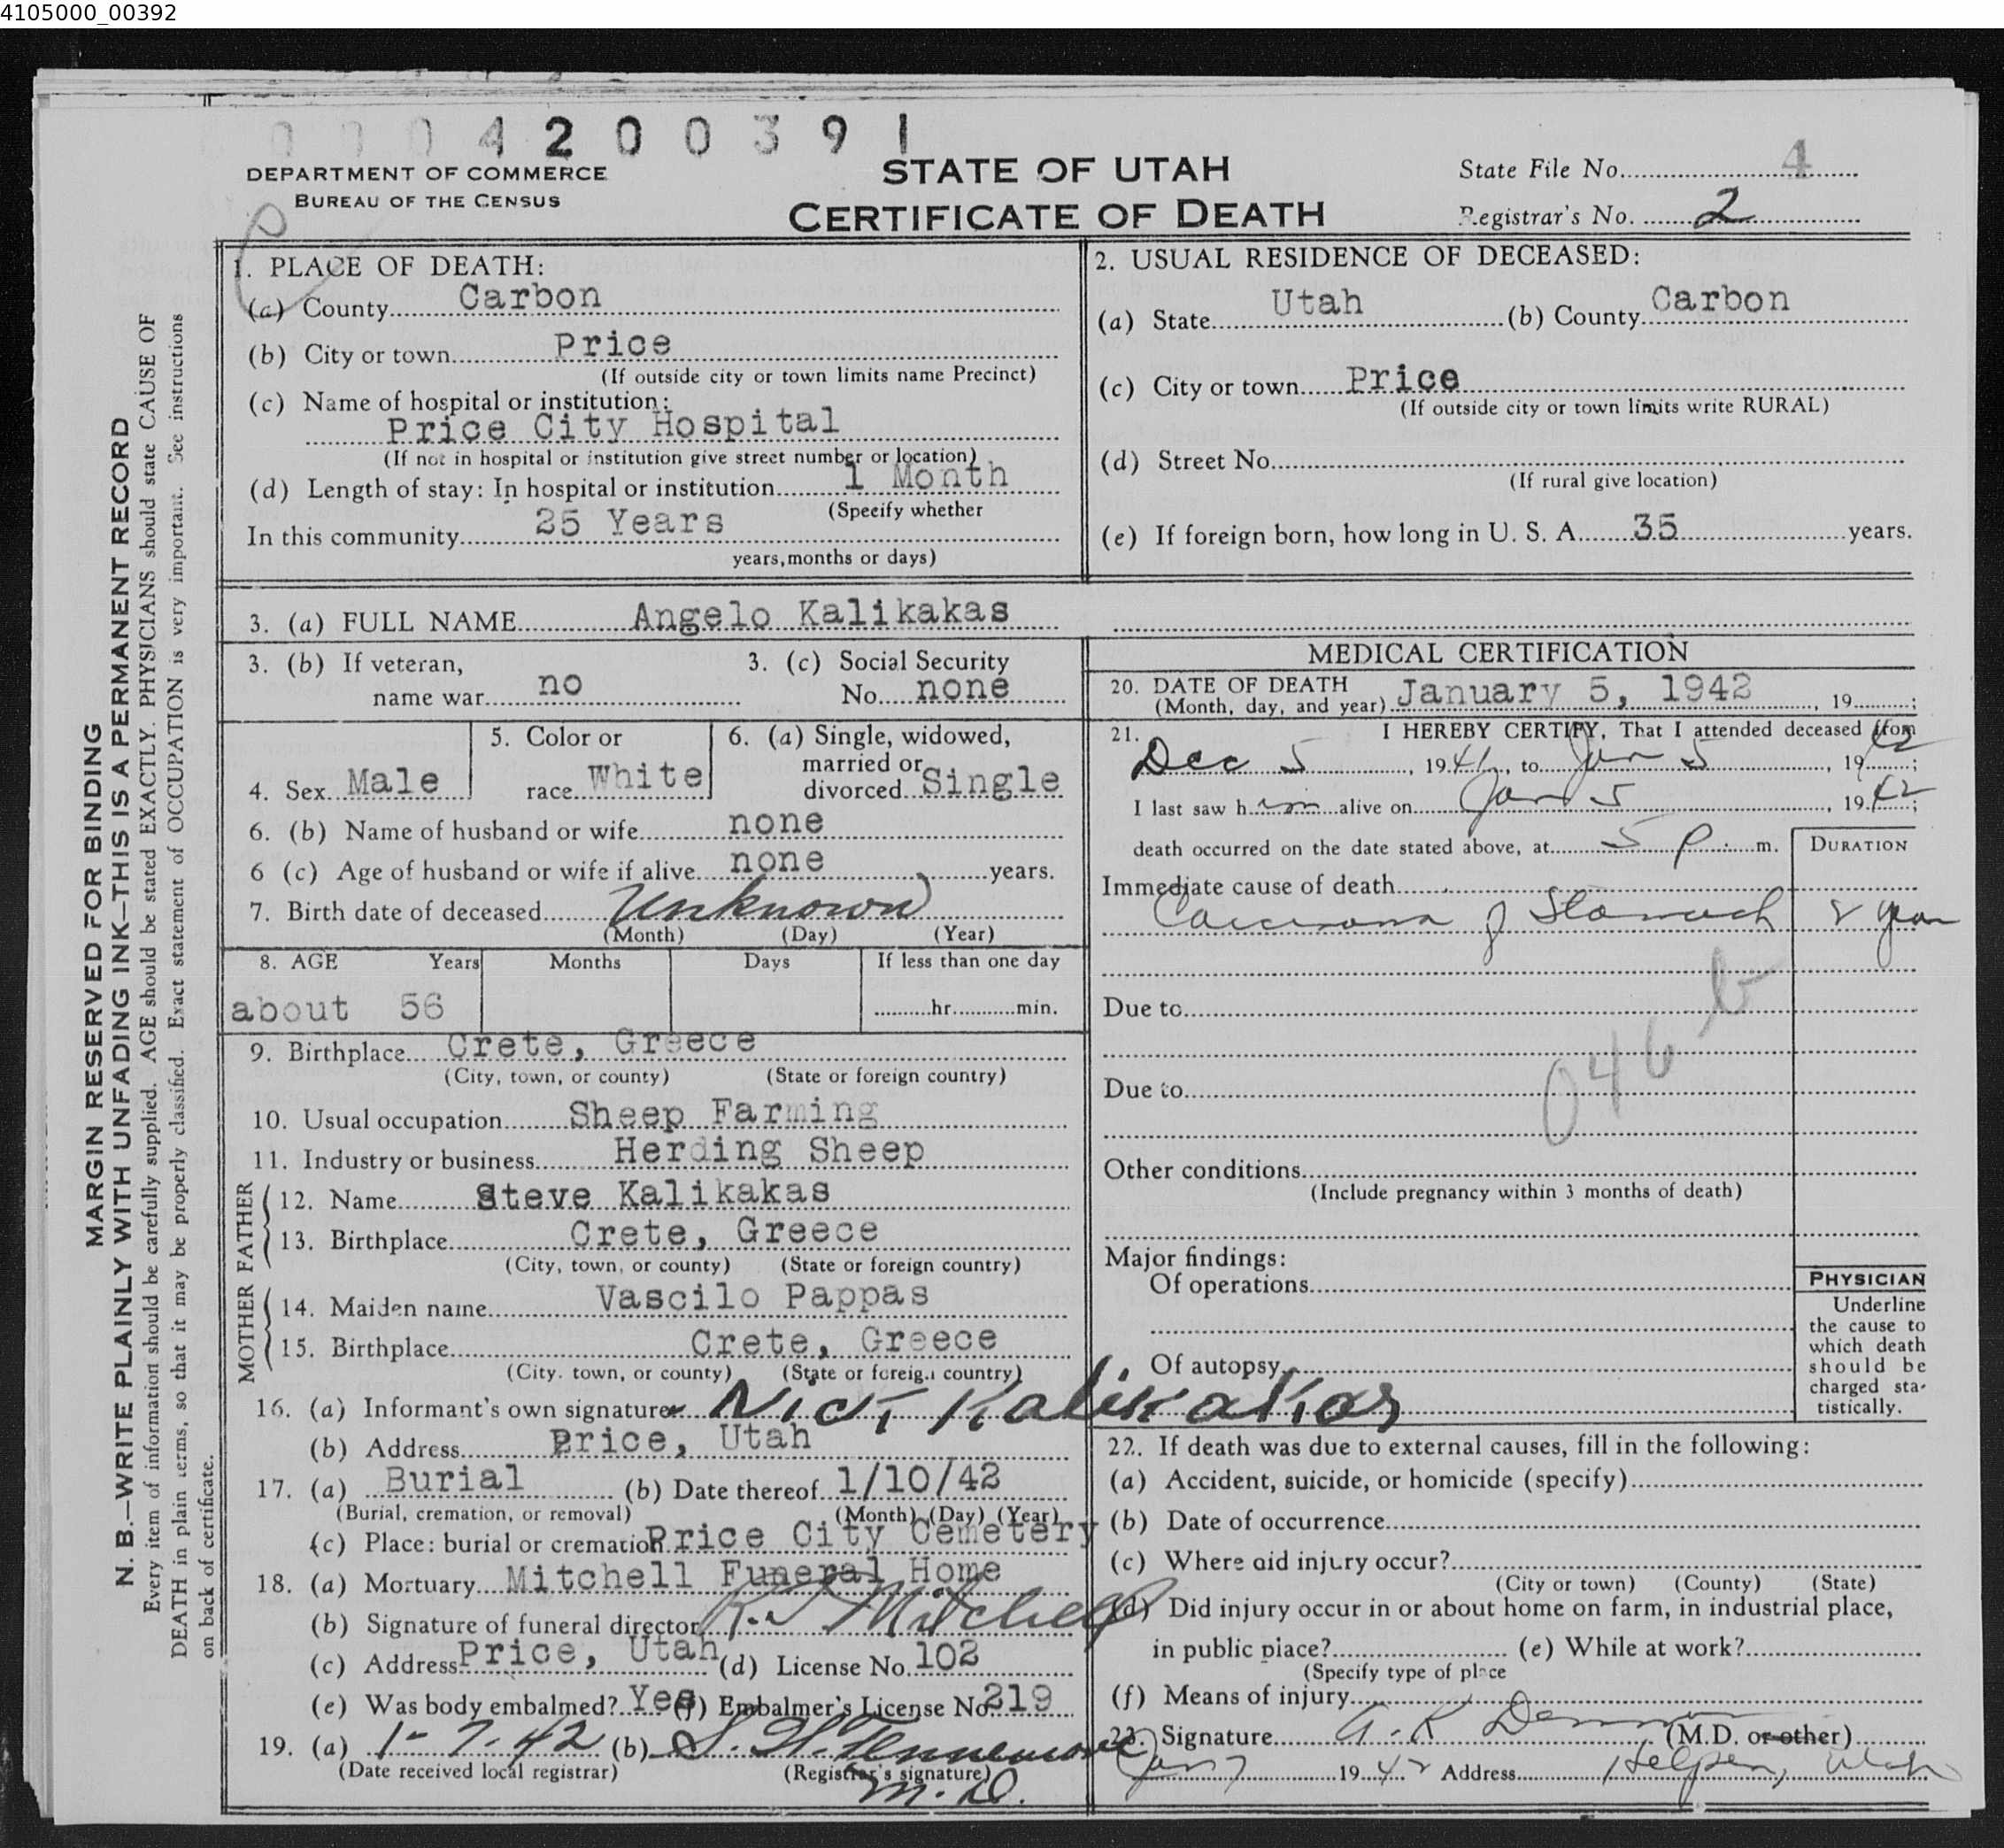 4105000_00392
0004200391
DEPARTMENT OF COMMERCE
BUREAU OF THE CENSUS
STATE OF UTAH
CERTIFICATE OF DEATH
State File No. 4
Registrar's No. 2
MARGIN RESERVED FOR BINDING
N. B.—WRITE PLAINLY WITH UNFADING INK—THIS IS A PERMANENT RECORD
Every item of information should be carefully supplied. AGE should be stated EXACTLY. PHYSICIANS should state CAUSE OF
DEATH in plain terms, so that it may be properly classified. Exact statement of OCCUPATION is very important. See instructions
on back of certificate.
1. PLACE OF DEATH:
(a) County Carbon
(b) City or town Price
(If outside city or town limits name Precinct)
(c) Name of hospital or institution:
Price City Hospital
(If not in hospital or institution give street number or location)
(d) Length of stay: In hospital or institution 1 Month
(Specify whether
In this community 25 Years
years, months or days)
2. USUAL RESIDENCE OF DECEASED:
(a) State Utah (b) County Carbon
(c) City or town Price
(If outside city or town limits write RURAL)
(d) Street No.
(If rural give location)
(e) If foreign born, how long in U. S. A. 35 years.
3. (a) FULL NAME Angelo Kalikakas
3. (b) If veteran, name war no
3. (c) Social Security No. none
4. Sex Male
5. Color or race White
6. (a) Single, widowed, married or divorced Single
6. (b) Name of husband or wife none
6 (c) Age of husband or wife if alive none years.
7. Birth date of deceased Unknown
(Month) (Day) (Year)
8. AGE Years Months Days If less than one day
about 56 hr. min.
9. Birthplace Crete, Greece
(City, town, or county) (State or foreign country)
10. Usual occupation Sheep Farming
11. Industry or business Herding Sheep
FATHER
12. Name Steve Kalikakas
13. Birthplace Crete, Greece
(City, town, or county) (State or foreign country)
MOTHER
14. Maiden name Vascilo Pappas
15. Birthplace Crete, Greece
(City. town, or county) (State or foreign country)
16. (a) Informant's own signature Nick Kalikakas
(b) Address Price, Utah
17. (a) Burial (b) Date thereof 1/10/42
(Burial, cremation, or removal) (Month) (Day) (Year)
(c) Place: burial or cremation Price City Cemetery
18. (a) Mortuary Mitchell Funeral Home
(b) Signature of funeral director Mitchell
(c) Address Price, Utah (d) License No. 102
(e) Was body embalmed? Yes (f) Embalmer's License No. 219
19. (a) 1-7-42 (b)
(Date received local registrar) (Registrar's signature)
M.D.
MEDICAL CERTIFICATION
20. DATE OF DEATH
(Month, day, and year) January 5, 1942, 19 ;
21. I HEREBY CERTIFY, That I attended deceased from
Dec 5, 1941, to Jan 5, 1942;
I last saw him alive on Jan 5, 1942;
death occurred on the date stated above, at 5 P. m.
DURATION
Immediate cause of death
Carcinoma of Stomach
year
Due to
046 b
Due to
Other conditions
(Include pregnancy within 3 months of death)
Major findings:
Of operations
Of autopsy
PHYSICIAN
Underline
the cause to
which death
should be
charged sta-
tistically.
22. If death was due to external causes, fill in the following:
(a) Accident, suicide, or homicide (specify)
(b) Date of occurrence
(c) Where did injury occur?
(City or town) (County) (State)
(d) Did injury occur in or about home on farm, in industrial place,
in public place? (e) While at work?
(Specify type of place
(f) Means of injury
23. Signature (M.D. or other)
Jan 7 1942 Address Helper, Utah